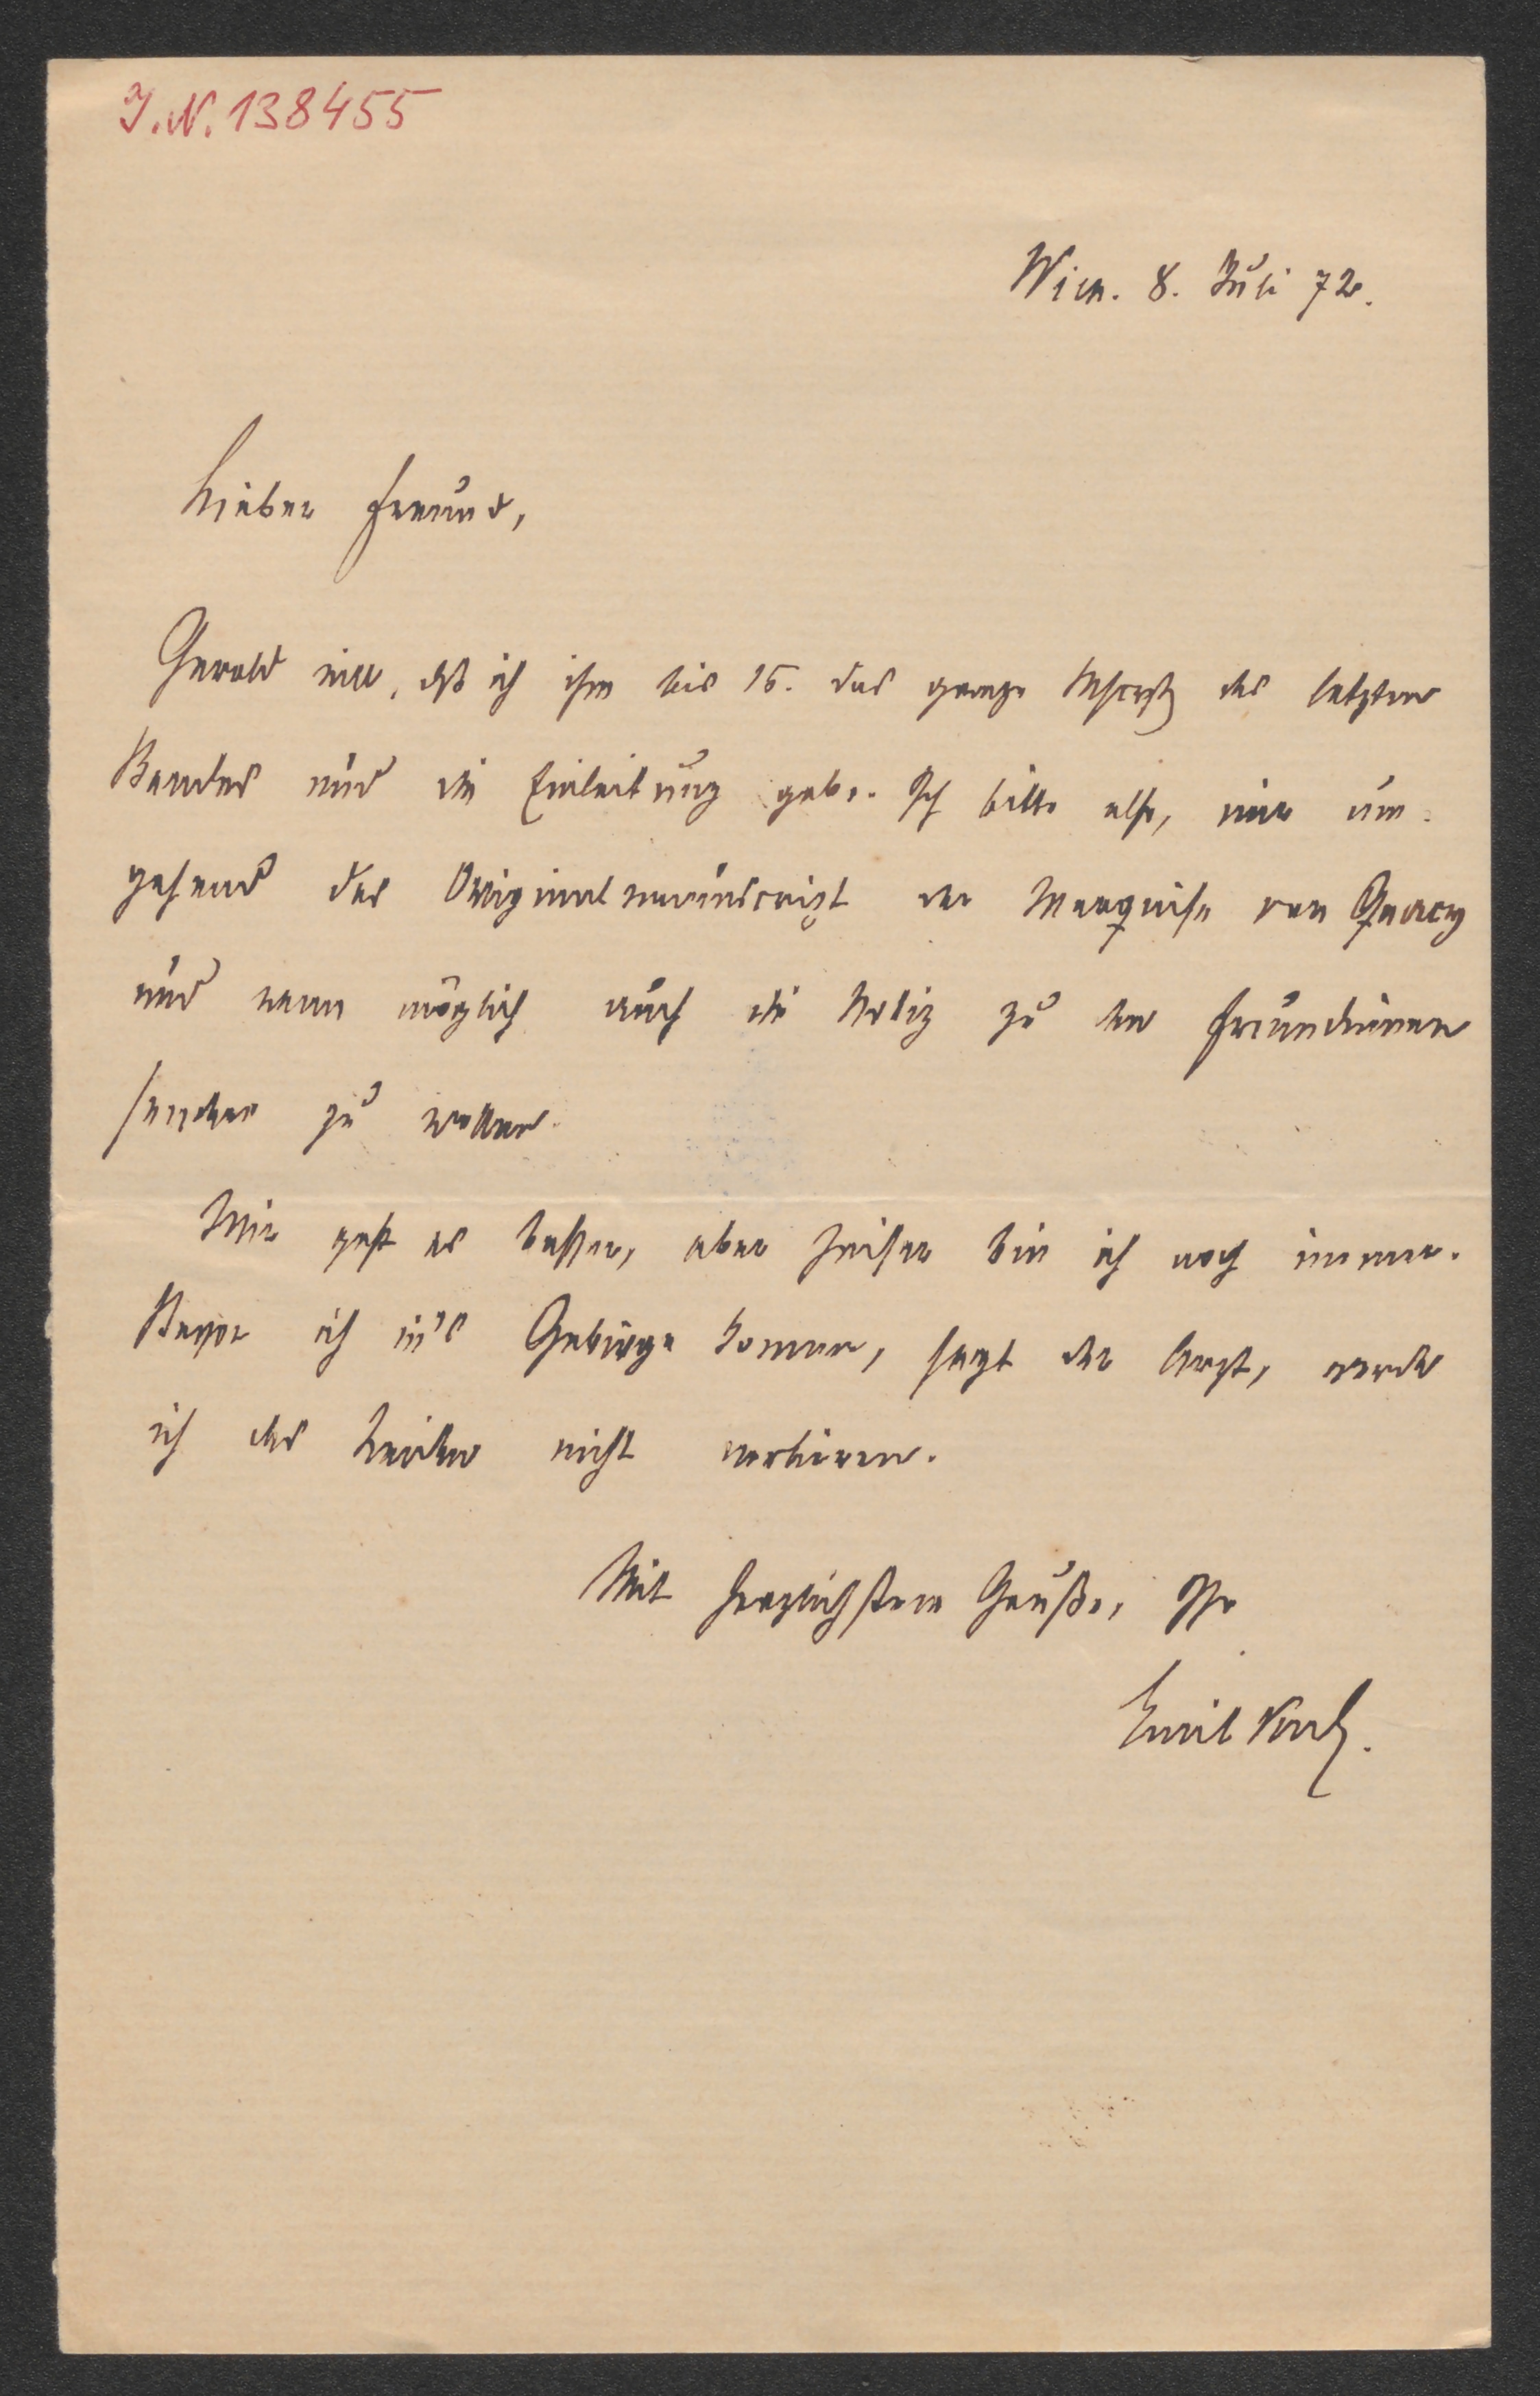 I.N. 138455
Wien. 8. Juli 72.
Lieber Freund,
Gerold will, dß ich ihm bis 15. das ganze Mscrpt des letzten
Bandes und die Einleitung gebe. Ich bitte also, mir um-
gehend das Originalmanuscript der Marquise von Quercy
und wenn möglich auch die Notiz zu den Freundinnen
senden zu wollen.
Mir geht es besser, aber heiser bin ich noch immer.
Bevor ich in's Gebirge komme, sagt der Arzt, werde
ich das Leiden nicht verlieren.
Mit herzlichstem Gruße, Ihr
Emil Kuh.